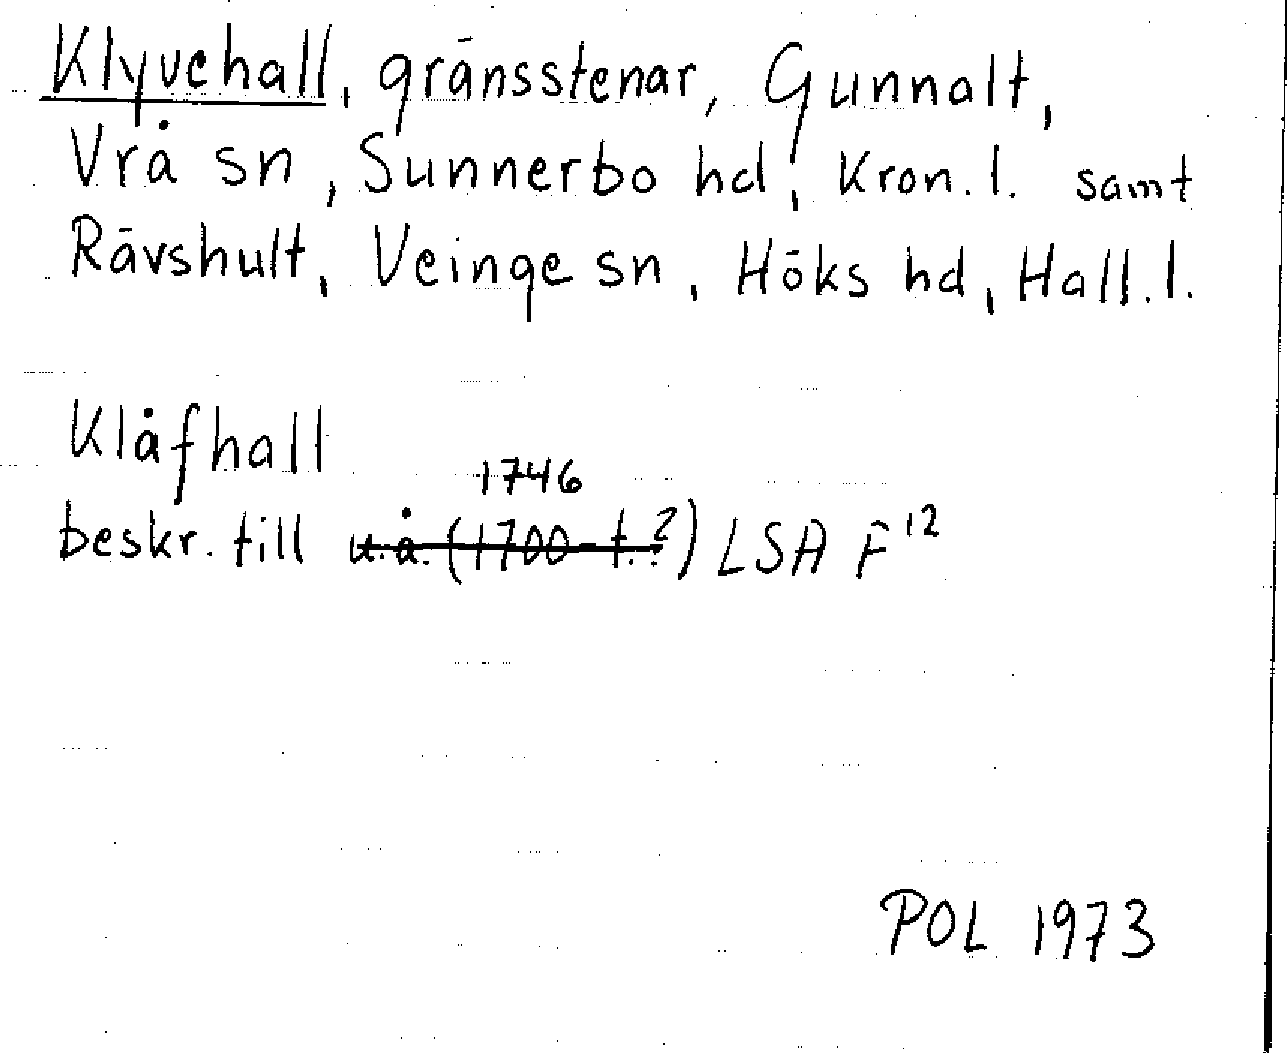 Klyvehall, gränsstenar, Gunnalt,
Vrå sn, Sunnerbo hd, Kron. l. samt
Rävshult, Veinge sn, Höks hd, Hall. l.
Klåfhall
1746
beskr. till u.å. (1700-t.?) LSA F 12
POL 1973